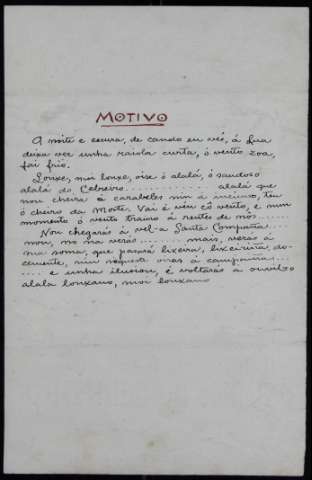 MOTIVO
A noite e escura, de cando en vés, á lua
deixa ver unha raiola curta, ó vento zoa,
fai frio.
Lonxe, moi lonxe, oise ó alalá, ó saudoso
alalá do Cebreiro............. alalá que
non cheira á caraveles nin á incienso, ten
ó cheiro da Morte. Vai é ven có vento, e nun
momento ó vento traino á rentes de nós......
Non chegarás á vel-a Santa Compaña...
non, no na verás....... mais, verás á
sua soma, que pasará lixeira, lixeiriña, do-
cemente, nin siquera oiras á campaniña...
.... e unha ilusion, é voltaras a ouvilo
alala lonxano, moi lonxano